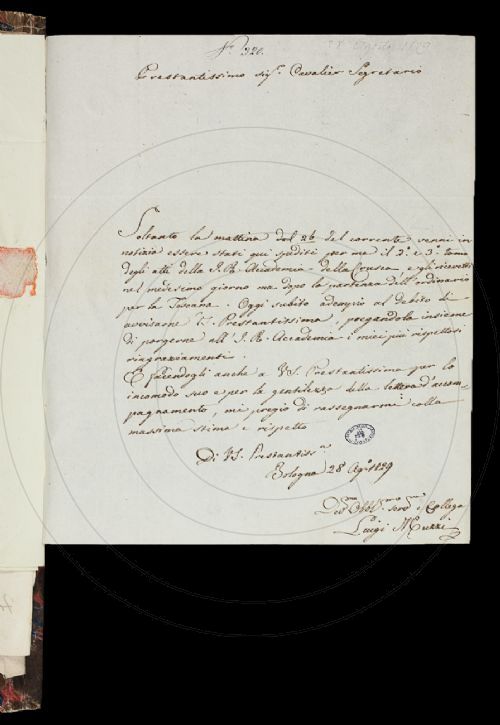 N.° 320.
28 Agosto 1829
Prestantissimo sig.r Cavalier Segretario
Soltanto la mattina del 26 del corrente venni in
notizia essere stati qui spediti per me il 2.° e 3.° tomo
degli atti della I. R. Accademia della Crusca, e gli ricevetti
nel medesimo giorno ma dopo la partenza dell'ordinario
per la Toscana. Oggi subito adempio al debito di
avvisarne V. Prestantissima, pregandola insieme
di porgerne all'I. R. Accademia i miei più rispettosi
ringraziamenti.
E facendogli anche a VS. Prestantissima per lo
incomodo suo e per la gentilezza della lettera d'accom-
pagnamento, mi pregio di rassegnarmi colla
massima stima e rispetto
Di VS. Prestantiss.a
Bologna 28 Ag.o 1829
Dev.mo Obbl.mo serv.e e Collega
Luigi Muzzi